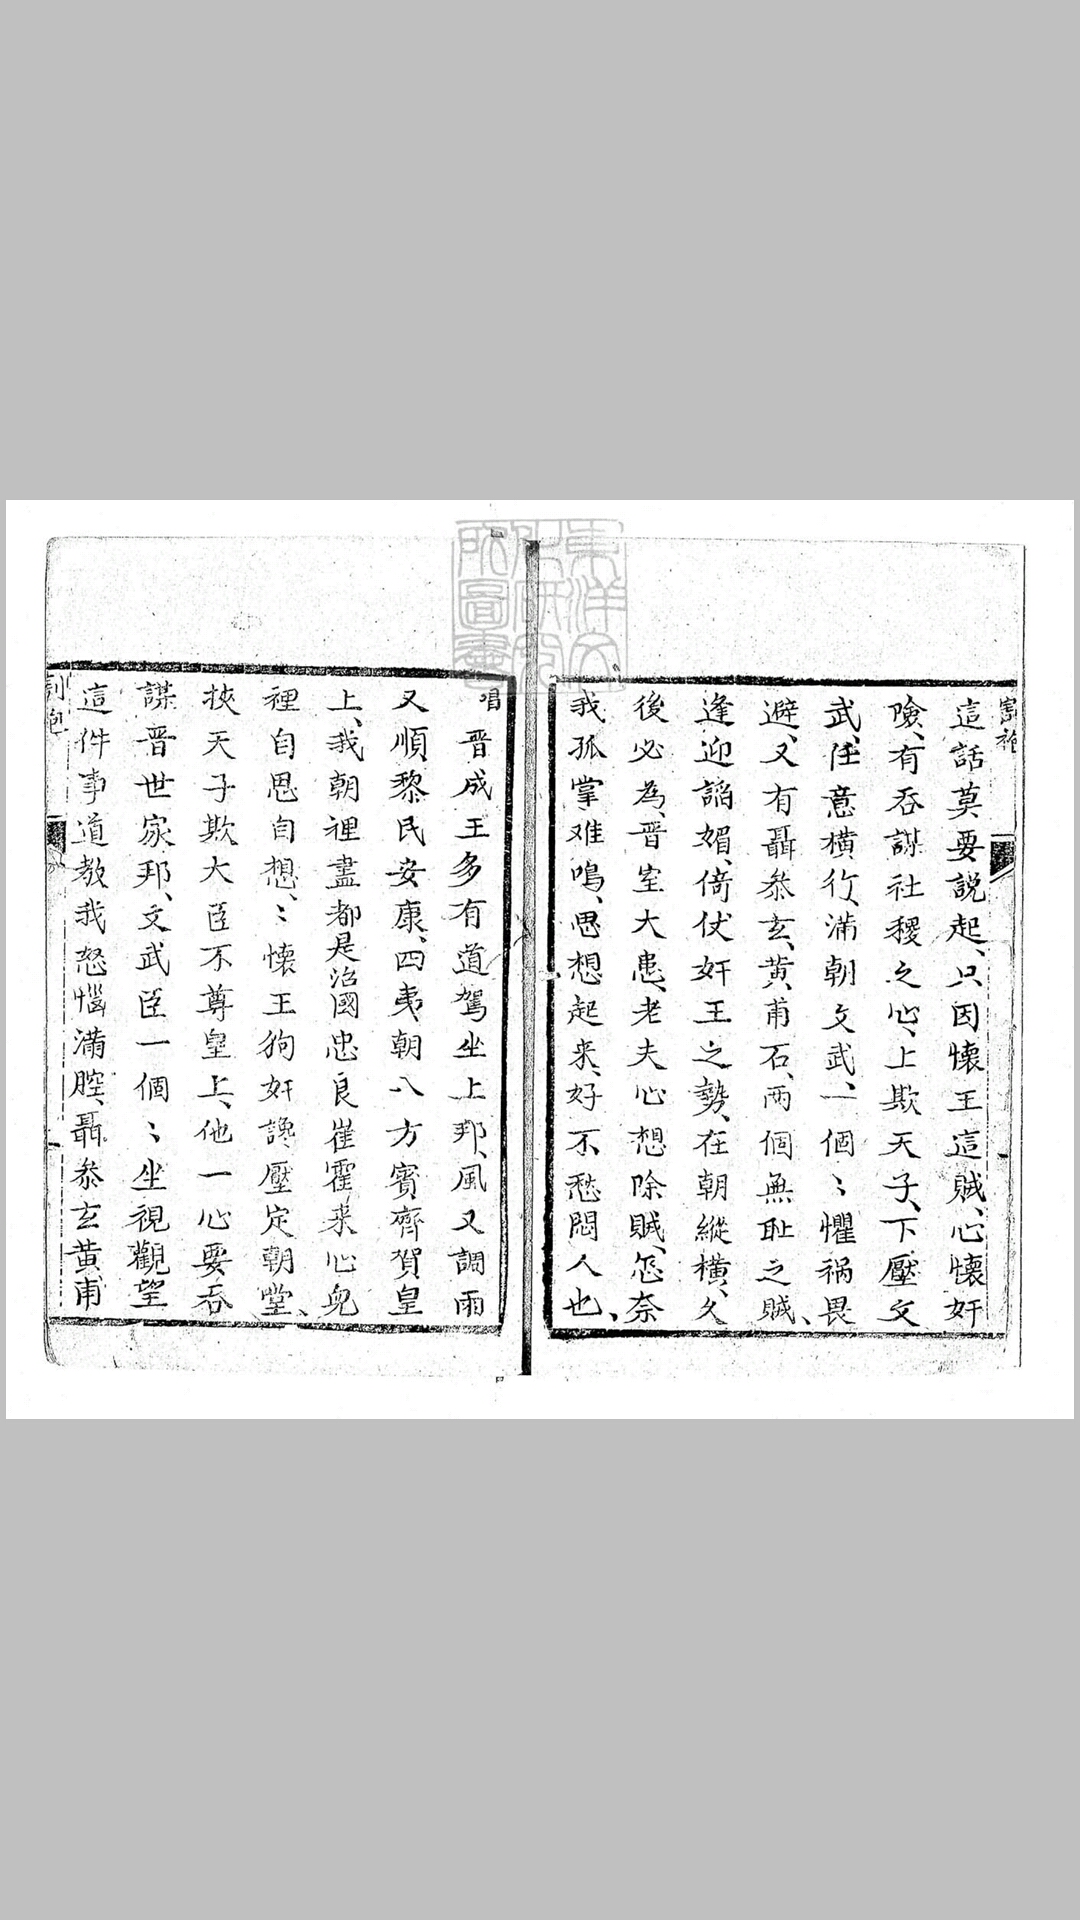 割袍
這話莫要説起、只因懐王這賊、心懐奸
險、有吞謀社稷之心、上欺天子、下壓文
武、任意橫行、滿朝文武、一個〻懼禍畏
避、又有聶叅玄、黄甫石、兩個無耻之賊、
逢迎謟媚、倚仗奸王之勢、在朝縱橫、久
後必為、晋室大患、老夫心想除賊、怎奈
我孤掌难鳴、思想起来、好不愁悶人也、
唱
晋成王多有道駕坐上邦、風又調雨
又順黎民安康、四夷朝八方賓齊賀皇
上、我朝裡盡都是治國忠良崔霍来心兒
裡自思自想、〻懐王狗奸讒壓定朝堂、
挾天子欺大臣不尊皇上、他一心要吞
謀晋世家邦、文武臣一個〻坐視觀望
這件事道教我怒惱滿腔、聶叅玄黄甫
割袍
東洋文
化研究
所圖書